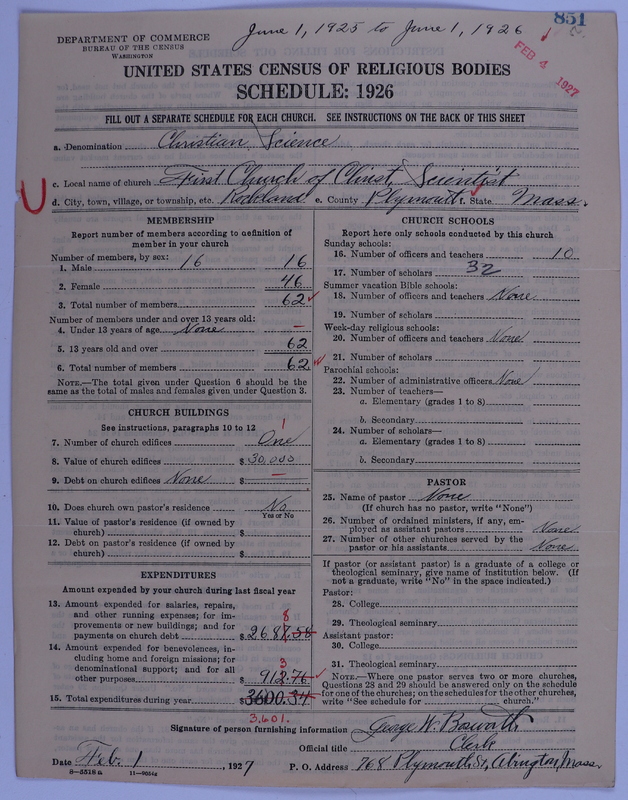 851
June 1, 1925 to June 1, 1926
DEPARTMENT OF COMMERCE
BUREAU OF THE CENSUS
WASHINGTON
FEB 4 1927
UNITED STATES CENSUS OF RELIGIOUS BODIES
SCHEDULE: 1926
FILL OUT A SEPARATE SCHEDULE FOR EACH CHURCH. SEE INSTRUCTIONS ON THE BACK OF THIS SHEET
a. Denomination Christian Science
c. Local name of church First Church of Christ, Scientist
d. City, town, village, or township, etc. Rockland e. County Plymouth State Mass.
MEMBERSHIP
Report number of members according to definition of
member in your church
Number of members, by sex:
1. Male 16 16
2. Female 46
3. Total number of members 62
Number of members under and over 13 years old:
4. Under 13 years of age None —
5. 13 years old and over 62
6. Total number of members 62
NOTE.—The total given under Question 6 should be the
same as the total of males and females given under Question 3.
CHURCH BUILDINGS
See instructions, paragraphs 10 to 12
7. Number of church edifices One 1
8. Value of church edifices $30,000
9. Debt on church edifices None $ —
10. Does church own pastor's residence No
Yes or No
11. Value of pastor's residence (if owned by
church) $
12. Debt on pastor's residence (if owned by
church) $
EXPENDITURES
Amount expended by your church during last fiscal year
13. Amount expended for salaries, repairs,
and other running expenses; for im-
provements or new buildings; and for
8
payments on church debt $2687.58
14. Amount expended for benevolences, in-
cluding home and foreign missions; for
denominational support; and for all
3
other purposes $912.76
15. Total expenditures during year $3600.34
3,601.
CHURCH SCHOOLS
Report here only schools conducted by this church
Sunday schools:
16. Number of officers and teachers 10
17. Number of scholars 32
Summer vacation Bible schools:
18. Number of officers and teachers None
19. Number of scholars
Week-day religious schools:
20. Number of officers and teachers None
21. Number of scholars
Parochial schools:
22. Number of administrative officers None
23. Number of teachers—
a. Elementary (grades 1 to 8)
b. Secondary
24. Number of scholars—
a. Elementary (grades 1 to 8)
b. Secondary
PASTOR
25. Name of pastor None
(If church has no pastor, write "None")
26. Number of ordained ministers, if any, em-
ployed as assistant pastors None
27. Number of other churches served by the
pastor or his assistants None
If pastor (or assistant pastor) is a graduate of a college or
theological seminary, give name of institution below. (If
not a graduate, write "No" in the space indicated.)
Pastor:
28. College
29. Theological seminary
Assistant pastor:
30. College
31. Theological seminary
NOTE.—Where one pastor serves two or more churches,
Questions 28 and 29 should be answered only on the schedule
for one of the churches; on the schedules for the other churches,
write "See schedule for church."
Signature of person furnishing information George W. Bosworth
Official title Clerk
Date Feb. 1, 1927 P. O. Address 768 Plymouth St, Abington, Mass.
8—3518a 11—9054g